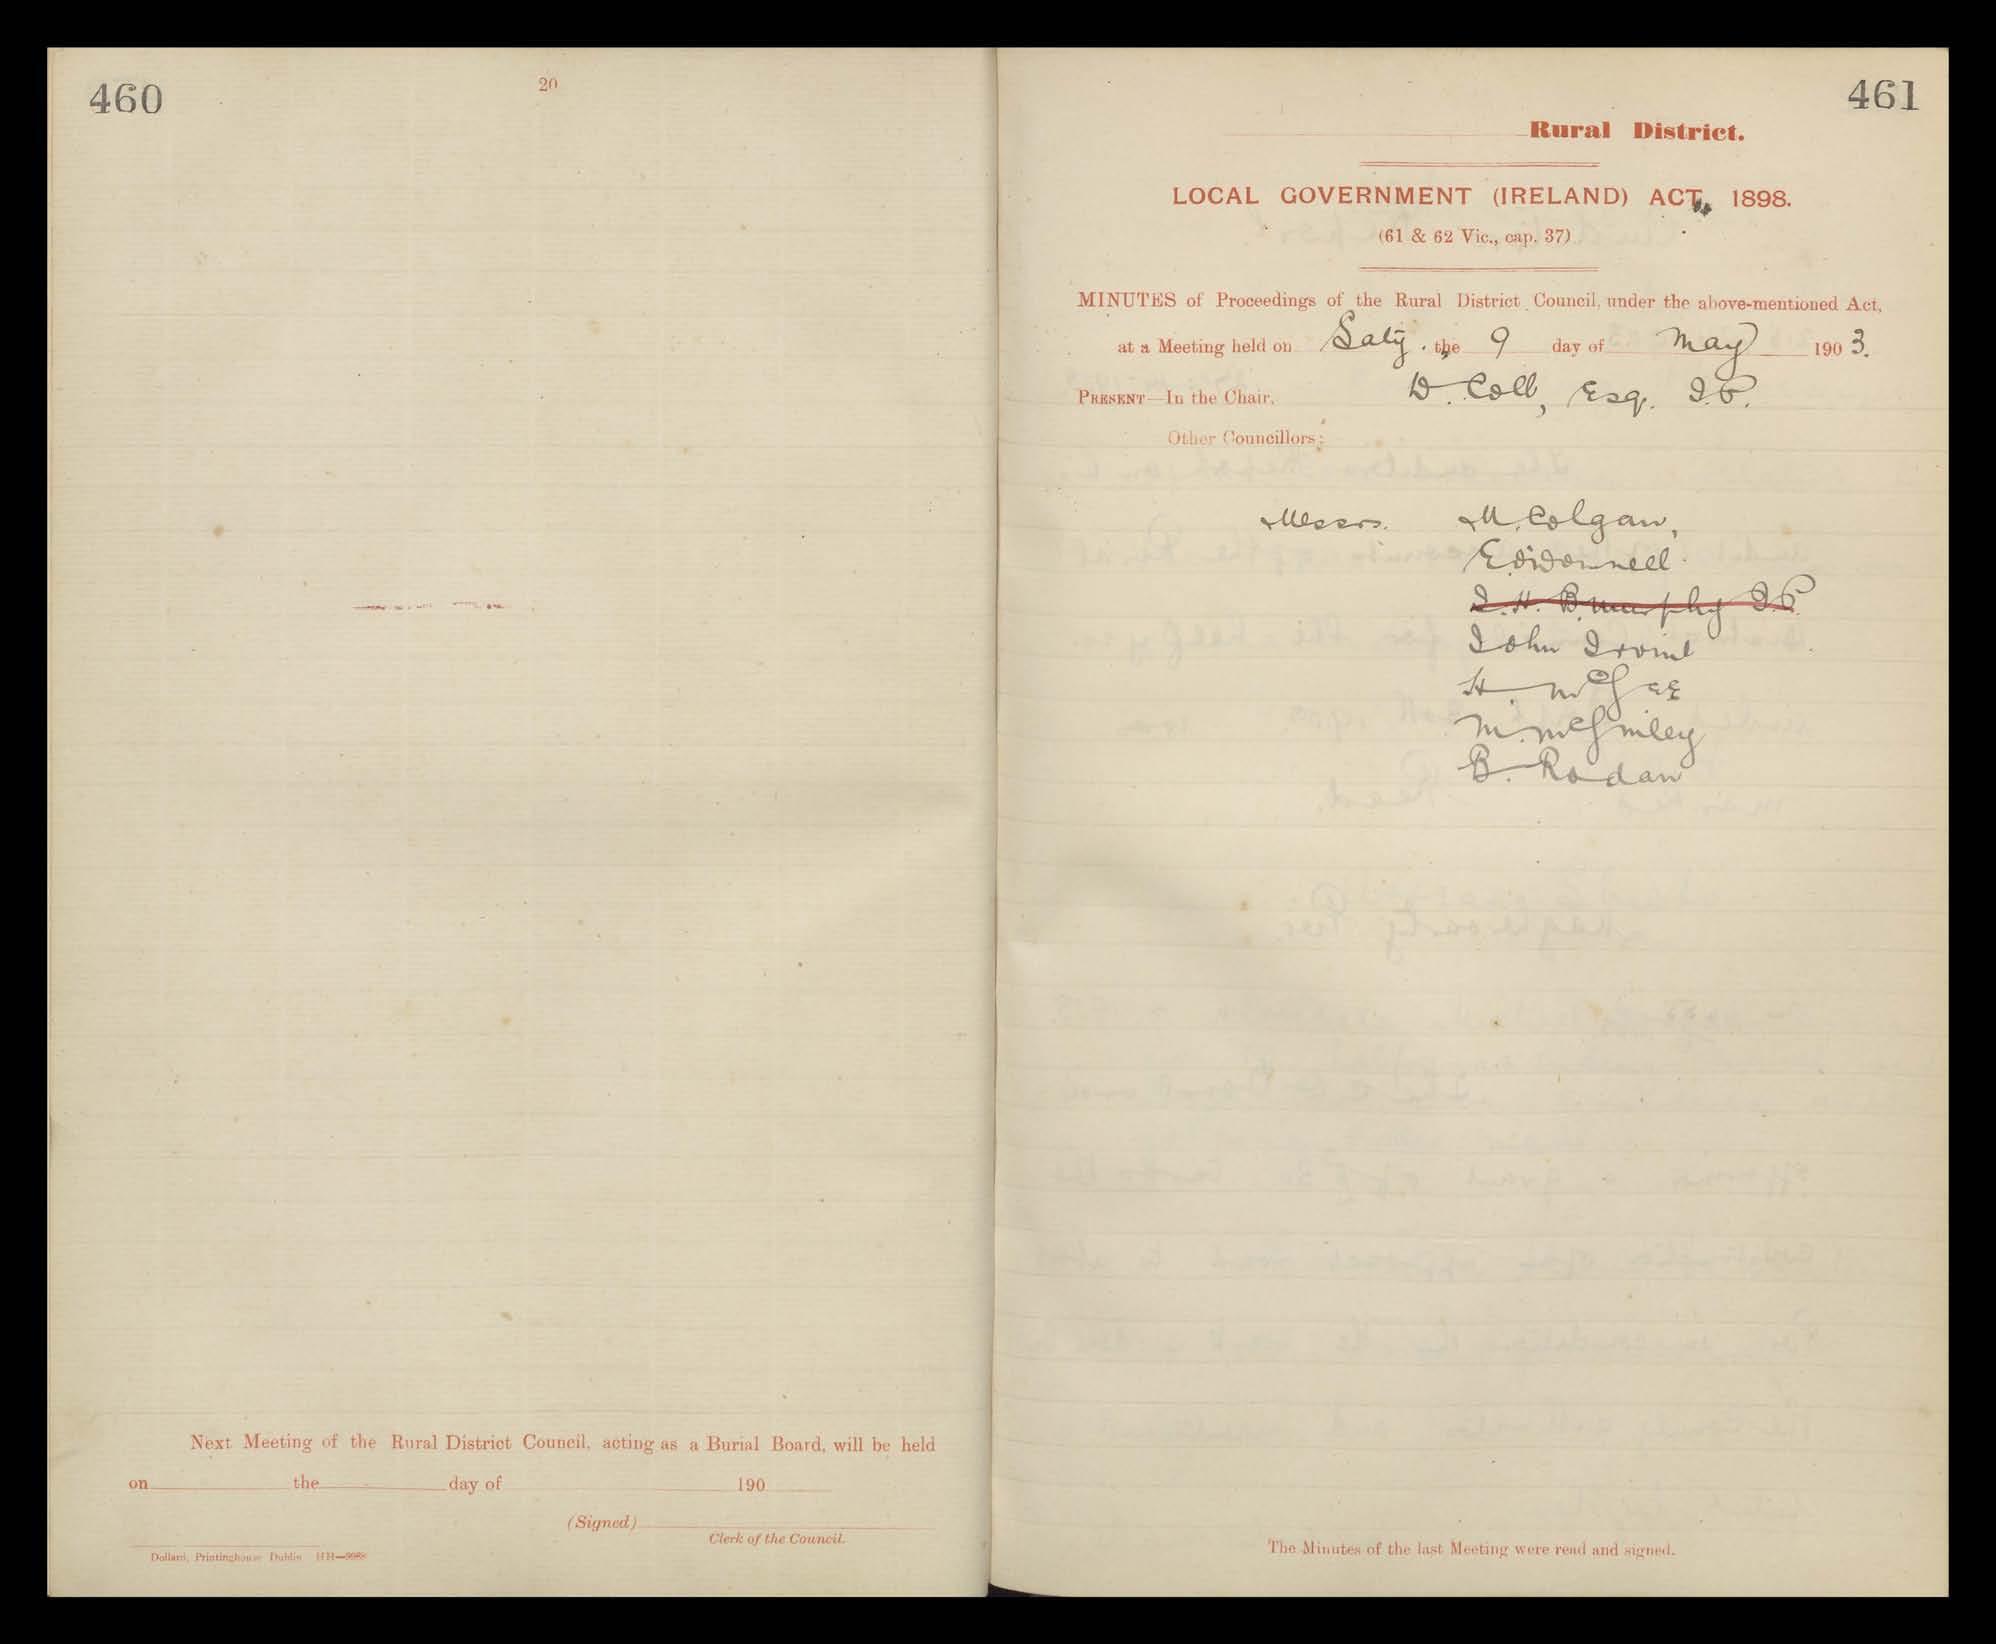 460
20
Next Meeting of the Rural District Council, acting as a Burial Board, will be held
on the day of 190
(Signed)
Clerk of the Council.
Dollard, Printinghouse Dublin HH—9968
461
Rural District.
LOCAL GOVERNMENT (IRELAND) ACT, 1898.
(61 & 62 Vic., cap. 37)
MINUTES of Proceedings of the Rural District Council, under the above-mentioned Act,
at a Meeting held on Saty. the 9 day of May 1903.
PRESENT—In the Chair, D. Coll, Esq. J.P.
Other Councillors:
Messrs. M. Colgan,
E. O'Donnell
J. H. B. Murphy J.P.
John Irvine
H. McGee
M. McGinley
B. Rodan
The Minutes of the last Meeting were read and signed.